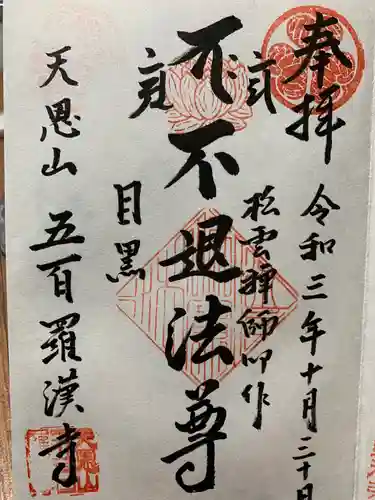 奉拝
令和三年十月三十日
松雲禅師作
不不退法尊
目黒
天恩山 五百羅漢寺